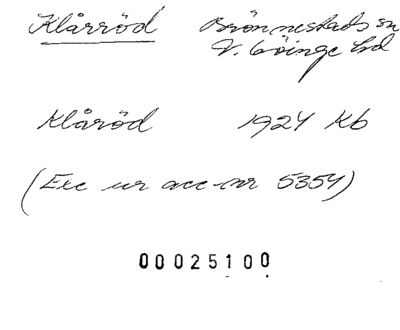 Klårröd Brönnestads sn
V. Göinge hd
Klåröd 1924 Kb
(Exc ur acc nr 5354)
00025100